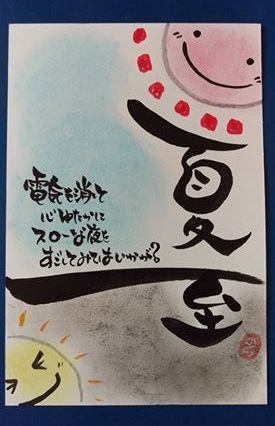 夏至
電気を消して
心ゆたかに
スローな夜を
すごしてみてはいかが?